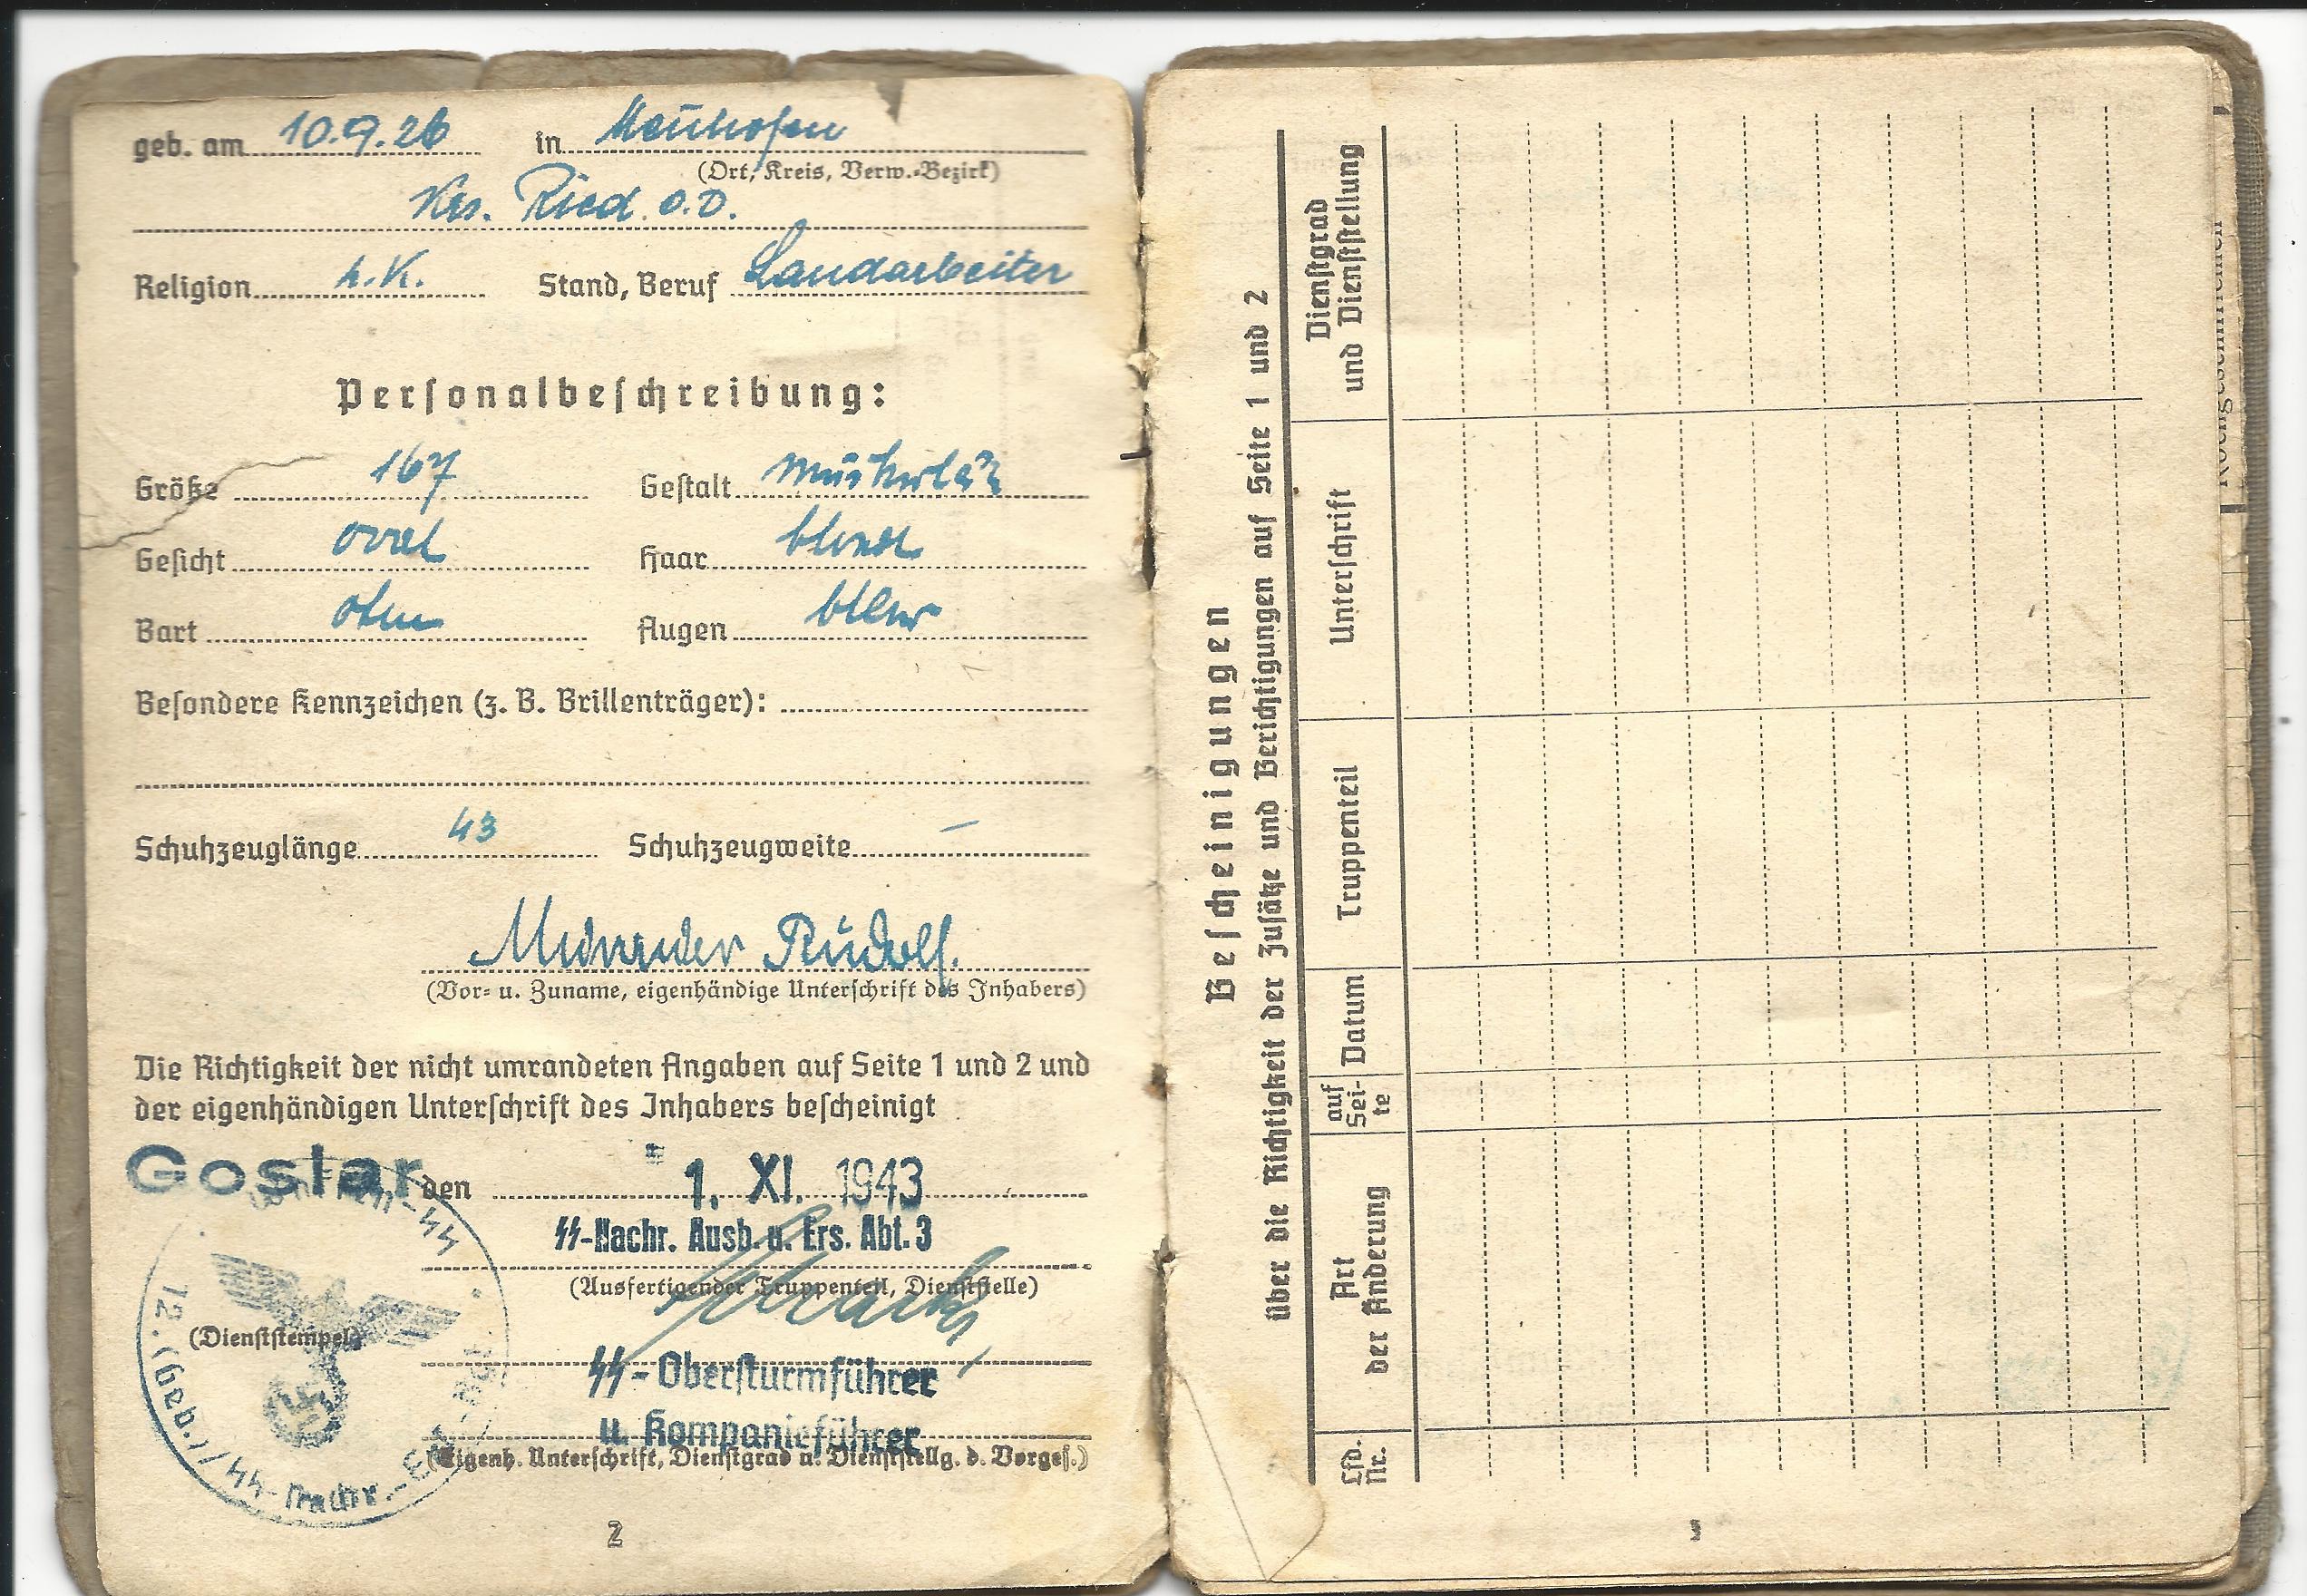 geb. am 10.9.26 in Neuhofen
(Ort, Kreis, Verw.-Bezirk)
Krs. Ried. o.D.
Religion r.K. Stand, Beruf Landarbeiter
Personalbeschreibung:
Größe 167 Gestalt muskulär
Gesicht oval Haar blond
Bart ohne Augen blau
Besondere Kennzeichen (z. B. Brillenträger):
Schuhzeuglänge 43 Schuhzeugweite —
Rudolf.
(Vor- u. Zuname, eigenhändige Unterschrift des Inhabers)
Die Richtigkeit der nicht umrandeten Angaben auf Seite 1 und 2 und
der eigenhändigen Unterschrift des Inhabers bescheinigt
Goslar den 1. XI. 1943
SS-Nachr. Ausb. u. Ers. Abt. 3
(Ausfertigender Truppenteil, Dienststelle)
(Dienststempel)
SS-Obersturmführer
u. Kompanieführer
(Eigenh. Unterschrift, Dienstgrad u. Dienststellg. d. Vorges.)
Waffen-SS
12.(Geb.)/SS-Nachr.-Ers.-Abt.
2
Bescheinigungen
über die Richtigkeit der Zusätze und Berichtigungen auf Seite 1 und 2
Lfd. Nr.
Art der Änderung
auf Sei-te
Datum
Truppenteil
Unterschrift
Dienstgrad und Dienststellung
3